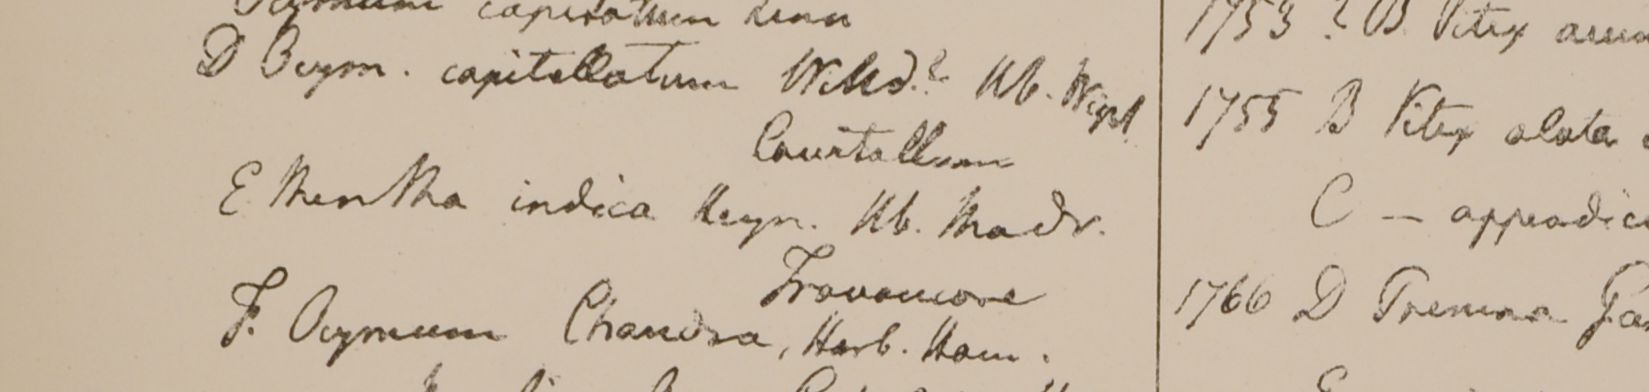 Ocymum capitatum Linn
D Ocym. capitellatum Willd.? Hb. Wight
Courtallum
E Mentha indica Heyn. Hb. Madr.
Travancore
F. Ocymum Chandra, Herb. Ham.
1753 ? B. Vitex
1755 B Vitex alata
C — appendic
1766 D Premna